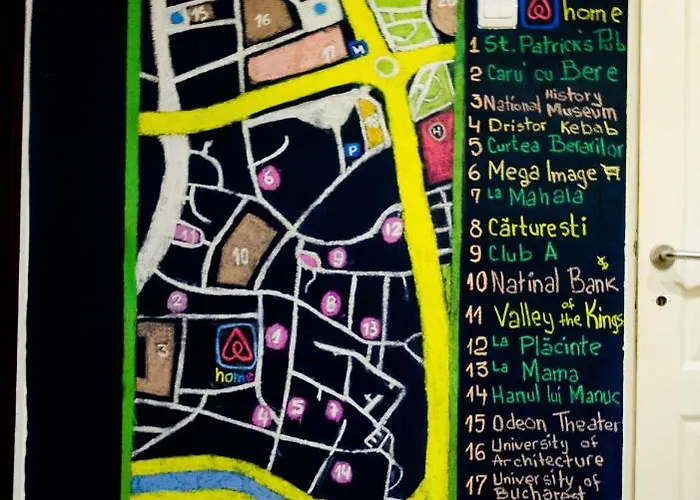 home
1 St. Patrick's Pub
2 Caru' cu Bere
3 National History
Museum
4 Dristor Kebab
5 Curtea Berarilor
6 Mega Image
7 La Mahala
8 Cărturesti
9 Club A
10 Natinal Bank
11 Valley of the Kings
12 La Plăcinte
13 La Mama
14 Hanul lui Manuc
15 Odeon Theater
16 University of
Architecture
17 University of
Bucharest
15
16
17
M
20
P
6
11
10
12
9
2
8
13
3
1
home
4
5
7
14